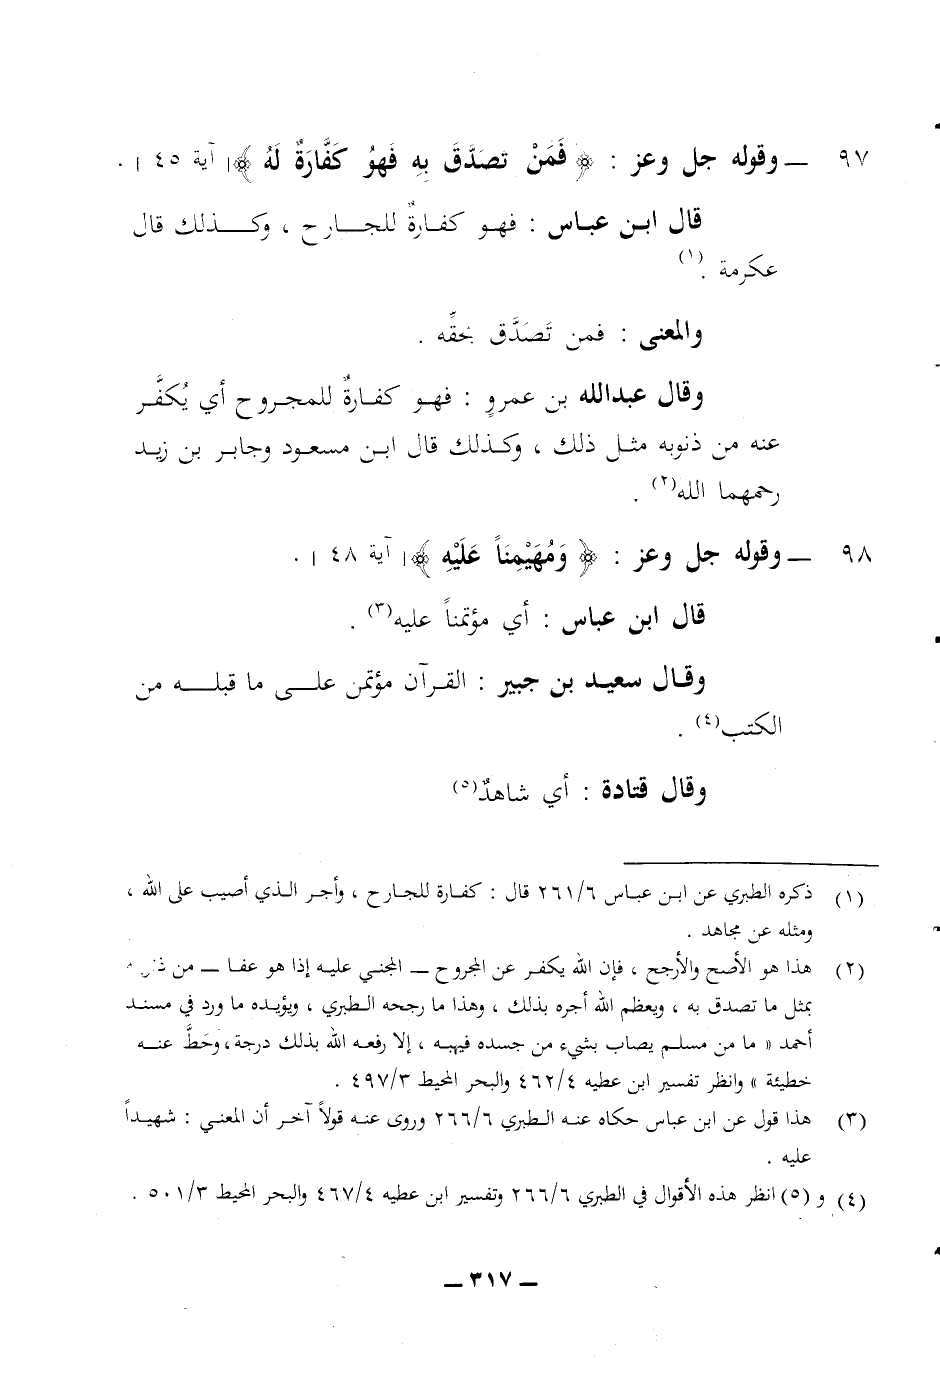 ٩٧ ــ وقوله جل وعز : ﴿ فَمَنْ تَصَدَّقَ بِهِ فَهُوَ كَفَّارَةٌ لَهُ ﴾ | آية ٤٥ | .
قال ابن عباس : فهو كفارةٌ للجارح ، وكذلك قال
عكرمة . (١)
والمعنى : فمن تَصَدَّق بحقِّه .
وقال عبدالله بن عمروٍ : فهو كفارةٌ للمجروح أي يُكفَّر
عنه من ذنوبه مثل ذلك ، وكذلك قال ابن مسعود وجابر بن زيد
رحمهما الله(٢) .
٩٨ ــ وقوله جل وعز : ﴿ وَمُهَيْمِنَاً عَلَيْهِ ﴾ | آية ٤٨ | .
قال ابن عباس : أي مؤتمناً عليه(٣) .
وقال سعيد بن جبير : القرآن مؤتمن على ما قبله من
الكتب(٤) .
وقال قتادة : أي شاهدٌ(٥)
(١) ذكره الطبري عن ابن عباس ٢٦١/٦ قال : كفارة للجارح ، وأجر الذي أصيب على الله ،
ومثله عن مجاهد .
(٢) هذا هو الأصح والأرجح ، فإن الله يكفر عن المجروح ــ المجني عليه إذا هو عفا ــ من
بمثل ما تصدق به ، ويعظم الله أجره بذلك ، وهذا ما رجحه الطبري ، ويؤيده ما ورد في مسند
أحمد « ما من مسلم يصاب بشيء من جسده فيهبه ، إلا رفعه الله بذلك درجة، وحَطَّ عنه
خطيئة » وانظر تفسير ابن عطيه ٤٦٢/٤ والبحر المحيط ٤٩٧/٣ .
(٣) هذا قول عن ابن عباس حكاه عنه الطبري ٢٦٦/٦ وروى عنه قولاً آخر أن المعنى : شهيداً
عليه .
(٤) و (٥) انظر هذه الأقوال في الطبري ٢٦٦/٦ وتفسير ابن عطيه ٤٦٧/٤ والبحر المحيط ٥٠١/٣ .
ــ ٣١٧ ــ